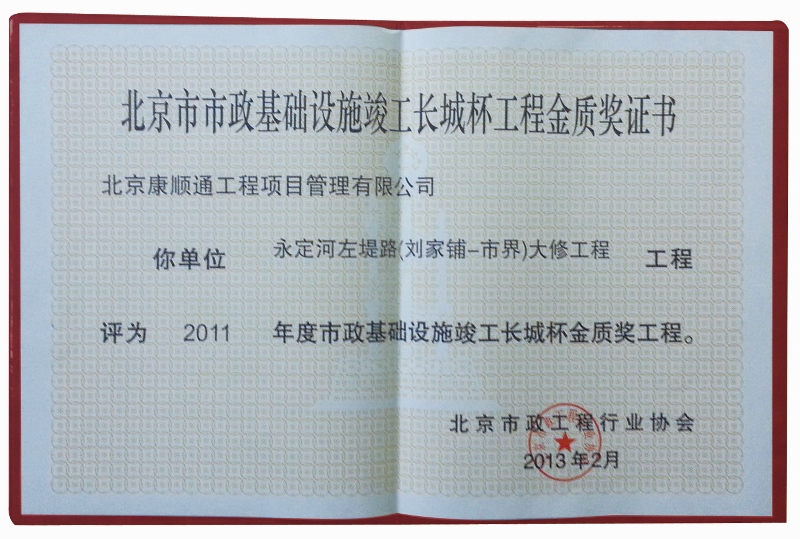 北京市市政基础设施竣工长城杯工程金质奖证书
北京康顺通工程项目管理有限公司
你单位 永定河左堤路(刘家铺-市界)大修工程 工程
评为 2011 年度市政基础设施竣工长城杯金质奖工程。
北京市政工程行业协会
2013年2月